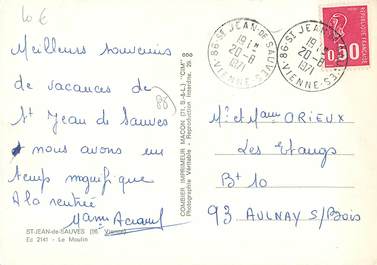 10 €
Meilleurs souvenirs
de vacances de
St Jean de Sauves
nous avons un
temps magnifique
A la rentrée
Mame
(86)
ST-JEAN-de-SAUVES (86 Vienne)
Ed 2141 - Le Moulin
COMBIER IMPRIMEUR MACON (71, S.-&-L.) "CIM"
Photographie Véritable - Reproduction Interdite.
86 - ST JEAN-DE-SAUVES
VIENNE
20-8
1971
86 - ST JEAN-DE-SAUVES
VIENNE
20-8
1971
0,50
Mr et Mame ORIEUX
Les Etangs
Bt 10
93 AULNAY S/Bois